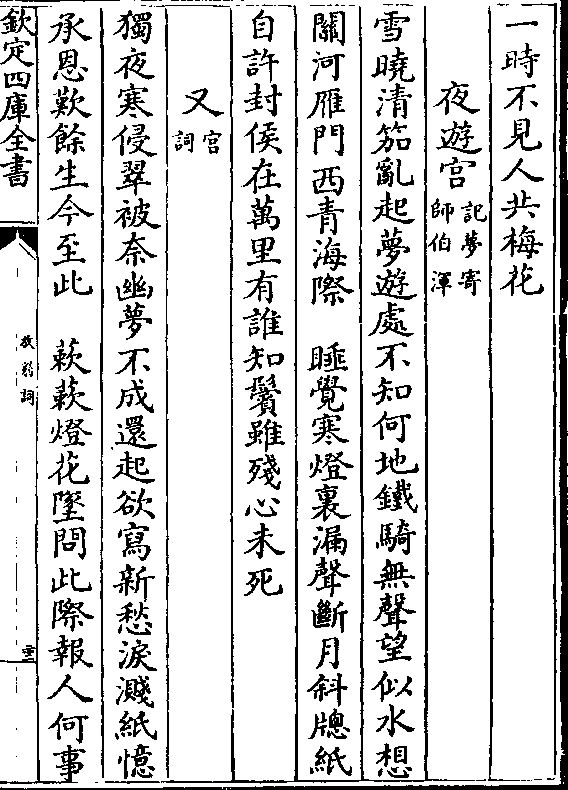 一時不見人共梅花
夜遊宮記夢寄師伯渾
雪曉清笳亂起夢遊處不知何地鐵騎無聲望似水想
關河雁門西青海際　睡覺寒燈裏漏聲斷月斜牕紙
自許封侯在萬里有誰知鬢雖殘心未死
又宮詞
獨夜寒侵翠被奈幽夢不成還起欲寫新愁淚濺紙憶
承恩歎餘生今至此　蔌蔌燈花墜問此際報人何事
欽定四庫全書
放翁詞